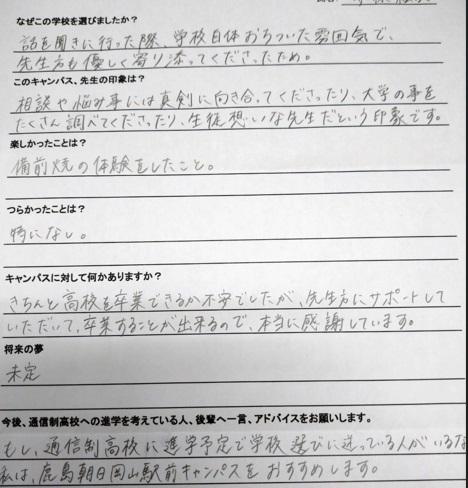 なぜこの学校を選びましたか?
話を聞きに行った際、学校自体おちついた雰囲気で、
先生方も優しく寄り添ってくださったため。
このキャンパス、先生の印象は?
相談や悩み事には真剣に向き合ってくださったり、大学の事を
たくさん調べてくださったり、生徒想いな先生だという印象です。
楽しかったことは?
備前焼の体験をしたこと。
つらかったことは?
特になし。
キャンパスに対して何かありますか?
きちんと高校を卒業できるか不安でしたが、先生方にサポートして
いただいて、卒業することが出来るので、本当に感謝しています。
将来の夢
未定
今後、通信制高校への進学を考えている人、後輩へ一言、アドバイスをお願いします。
もし、通信制高校に進学予定で学校選びに迷っている人がいるな
私は、鹿島朝日岡山駅前キャンパスをおすすめします。